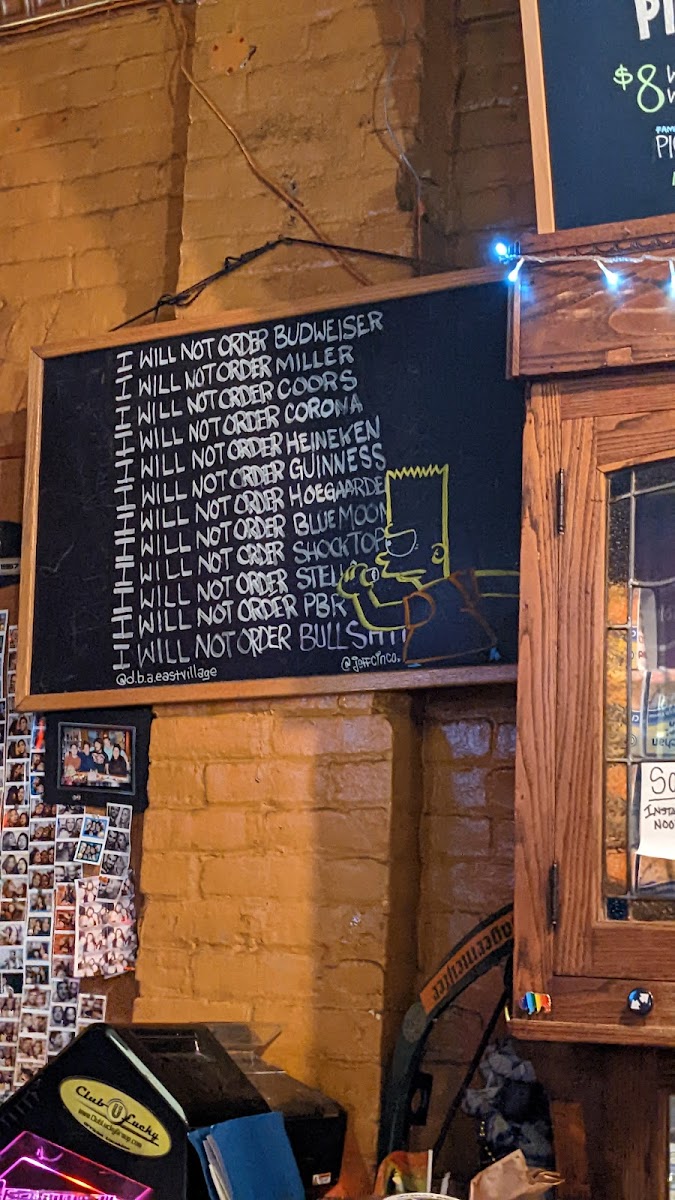 PI
$8
PI
I WILL NOT ORDER BUDWEISER
I WILL NOT ORDER MILLER
I WILL NOT ORDER COORS
I WILL NOT ORDER CORONA
I WILL NOT ORDER HEINEKEN
I WILL NOT ORDER GUINNESS
I WILL NOT ORDER HOEGAARDE
I WILL NOT ORDER BLUE MOON
I WILL NOT ORDER SHOCKTOP
I WILL NOT ORDER STELL
I WILL NOT ORDER PBR
I WILL NOT ORDER BULLSHIT
@d.b.a.eastvillage
@jeffcinco.
INSTA
NOO
Jagermeister
Club Lucky
www.ClubLuckyGroup.com